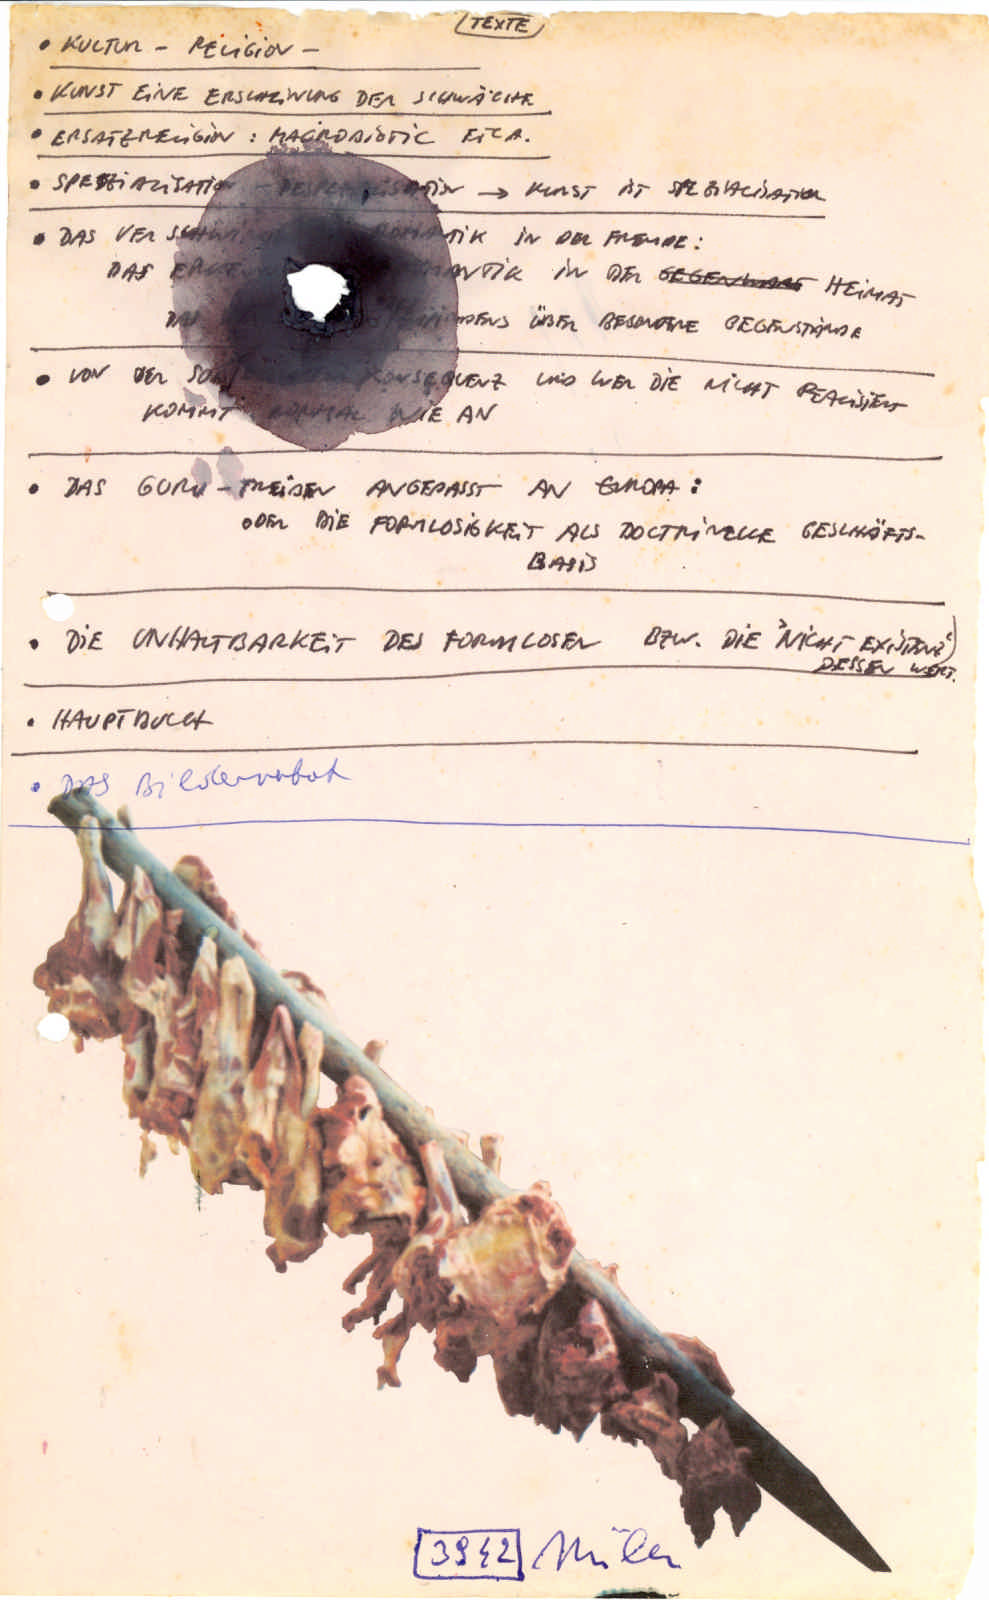 TEXTE
• KULTUR – RELIGION –
• KUNST EINE ERSCHEINUNG DER SCHWÄCHE
• ERSATZRELIGION : MACROBIOTIC ETC.
• SPEZIALISATION – → KUNST IST SPEZIALISATION
• DAS IN DER FREMDE :
DAS IN DER GEGENWART HEIMAT
ÜBER BESONDERE GEGENSTÄNDE
• VON DER KONSEQUENZ UND WER DIE NICHT REALISIERT
KOMMT NORMAL WIE AN
• DAS GURU – TREIBEN ANGEPASST AN EUROPA :
ODER DIE FORMLOSIGKEIT ALS DOCTRINELLE GESCHÄFTS-
BASIS
• DIE UNHALTBARKEIT DES FORMLOSEN BZW. DIE "NICHT EXISTENZ"
DESSEN WERT.
• HAUPTBUCH
• DAS Bilderverbot
3942 Müller